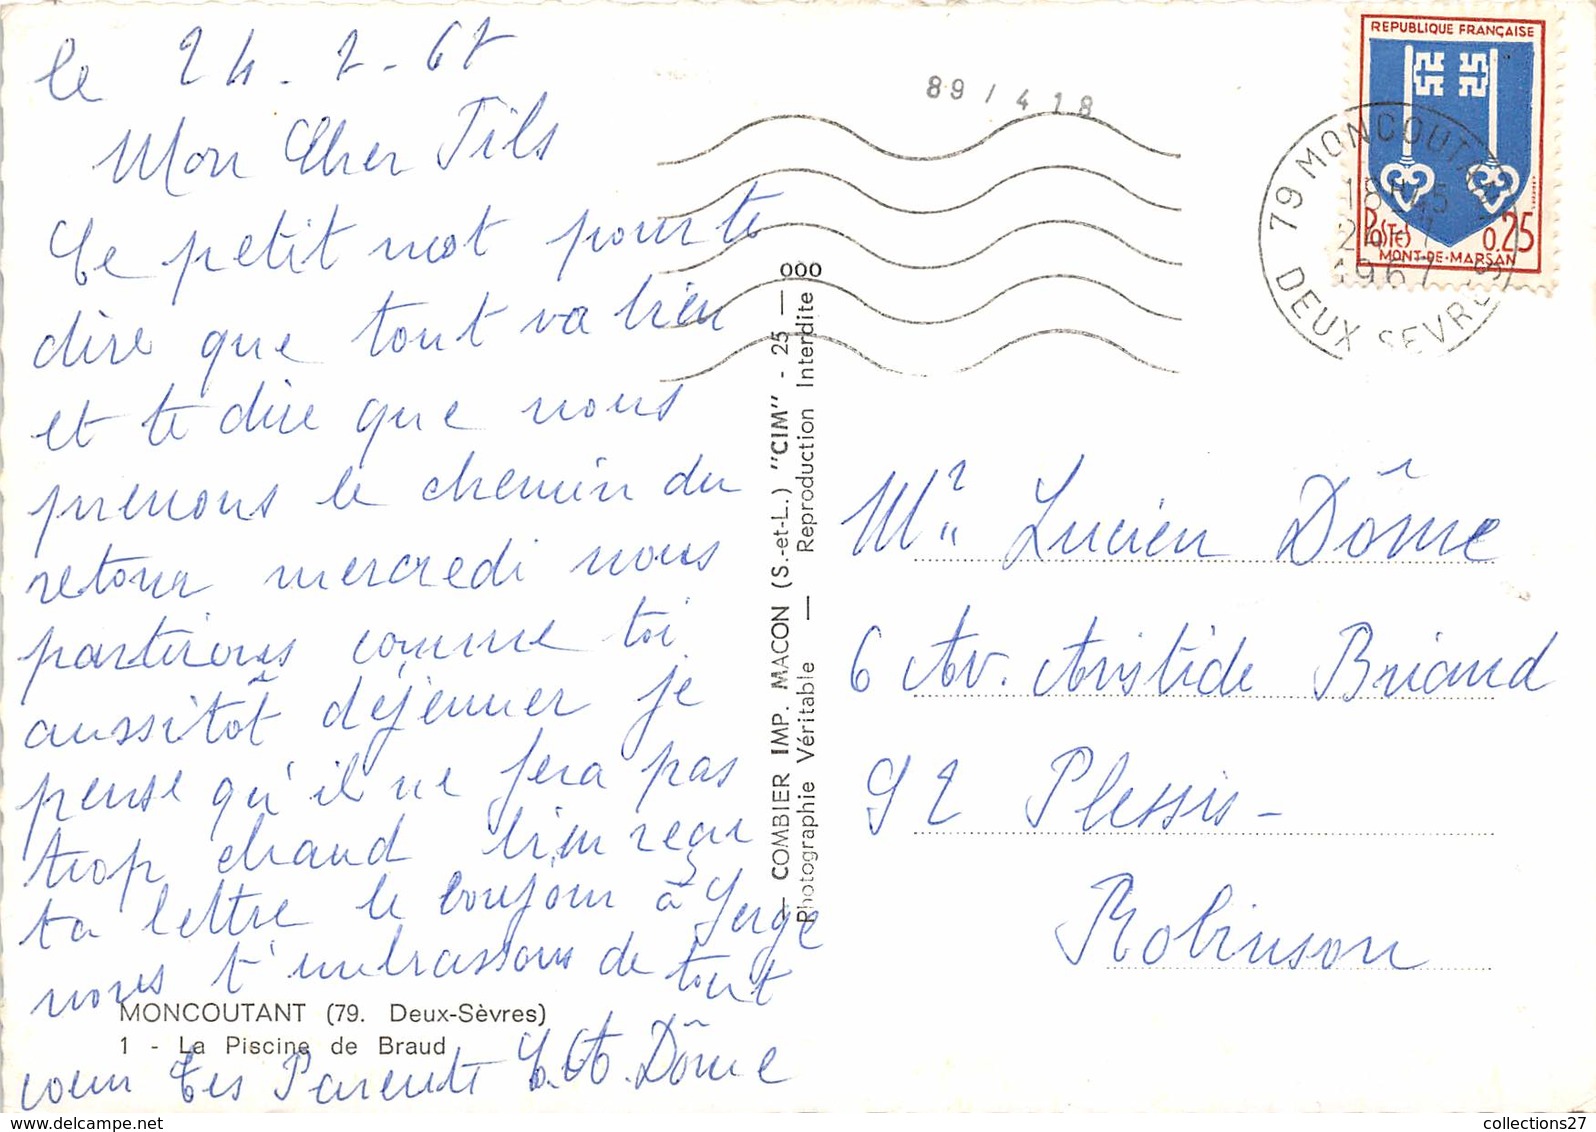 le 24-7-67
Mon Cher Fils
Ce petit mot pour te
dire que tout va bien
et te dire que nous
prenons le chemin du
retour mercredi nous
partirons comme toi
aussitôt déjeuner je
pense qu'il ne fera pas
trop chaud bien reçu
ta lettre le bonjour à Serge
nous t'embrassons de tout
coeur Tes Parents
Dôme
MONCOUTANT (79. Deux-Sèvres)
1 - La Piscine de Braud
COMBIER IMP. MACON (S.-et-L.) "CIM" - 25 — 000
Photographie Véritable — Reproduction Interdite
89 / 418
79 MONCOUTANT
18H45
24-7
1967
DEUX SEVRES
REPUBLIQUE FRANÇAISE
POSTES 0,25
MONT-DE-MARSAN
Mr Lucien Dôme
6 Av. Aristide Briand
92 Plessis-
Robinson
collections27